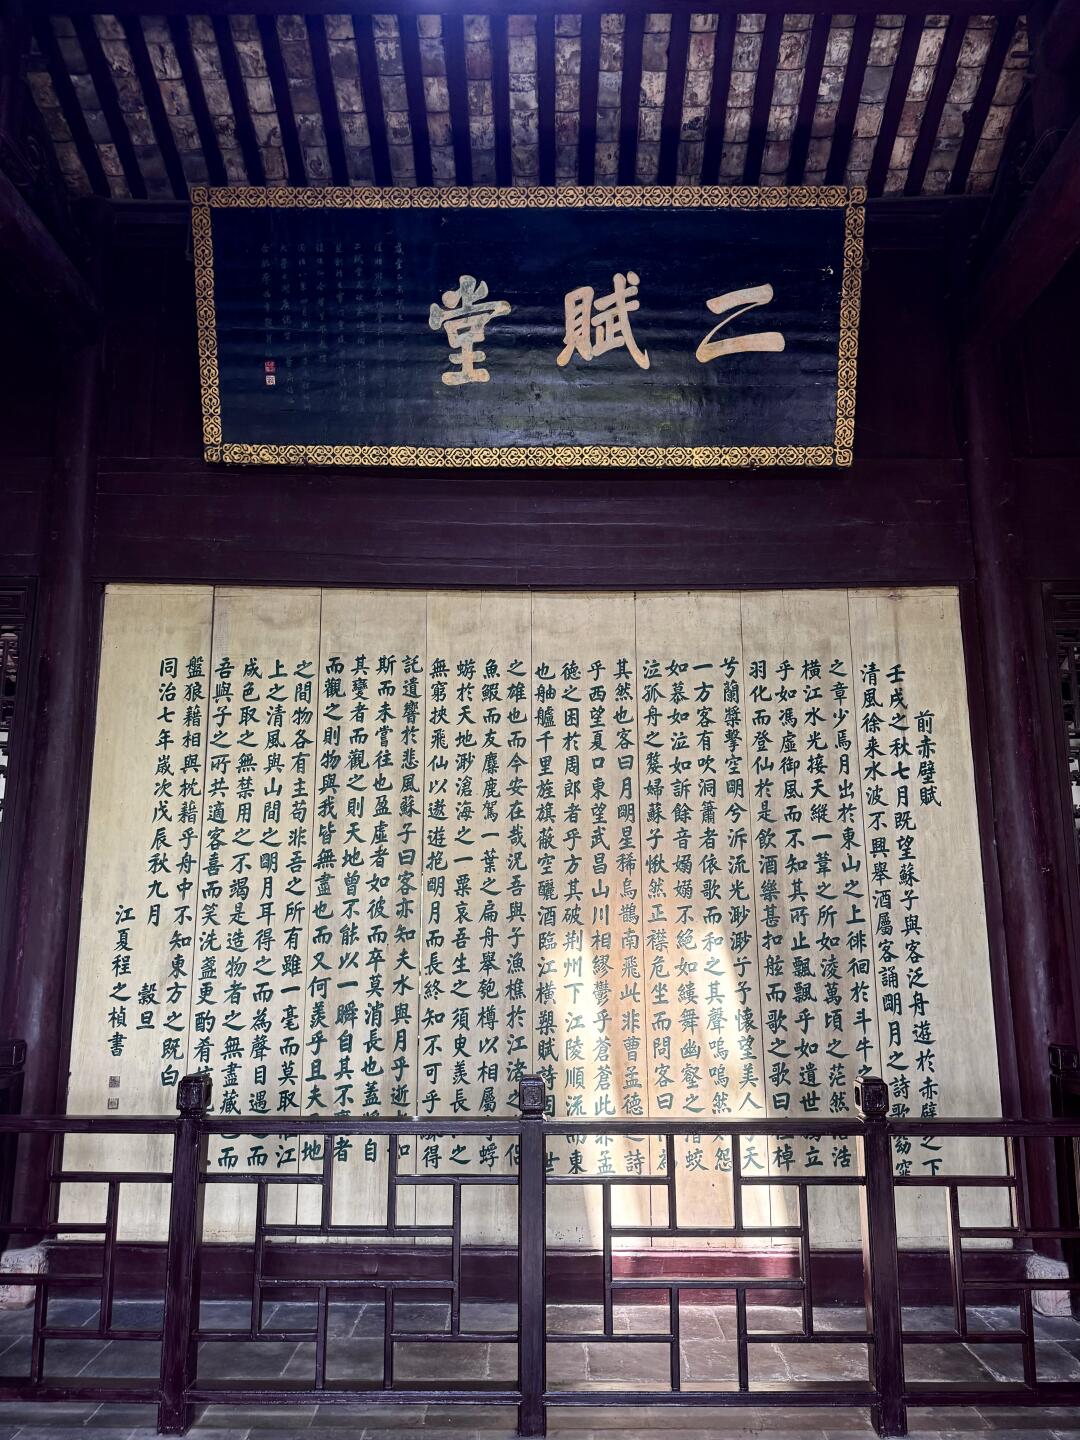 二賦堂
前赤壁賦
壬戌之秋七月既望蘇子與客泛舟遊於赤壁之下
清風徐來水波不興舉酒屬客誦明月之詩歌窈窕
之章少焉月出於東山之上徘徊於斗牛之
橫江水光接天縱一葦之所如淩萬頃之茫然浩浩
乎如馮虛御風而不知其所止飄飄乎如遺世獨立
羽化而登仙於是飲酒樂甚扣舷而歌之歌曰桂棹
兮蘭槳擊空明兮泝流光渺渺兮予懷望美人兮天
一方客有吹洞簫者依歌而和之其聲嗚嗚然如怨
如慕如泣如訴餘音嫋嫋不絕如縷舞幽壑之潛蛟
泣孤舟之嫠婦蘇子愀然正襟危坐而問客曰何為
其然也客曰月明星稀烏鵲南飛此非曹孟德之詩
乎西望夏口東望武昌山川相繆鬱乎蒼蒼此非孟
德之困於周郎者乎方其破荊州下江陵順流而東
也舳艫千里旌旗蔽空釃酒臨江橫槊賦詩固一世
之雄也而今安在哉況吾與子漁樵於江渚之上侶
魚鰕而友麋鹿駕一葉之扁舟舉匏樽以相屬寄蜉
蝣於天地渺滄海之一粟哀吾生之須臾羨長江之
無窮挾飛仙以遨遊抱明月而長終知不可乎驟得
託遺響於悲風蘇子曰客亦知夫水與月乎逝者如
斯而未嘗往也盈虛者如彼而卒莫消長也蓋將自
其變者而觀之則天地曾不能以一瞬自其不變者
而觀之則物與我皆無盡也而又何羨乎且夫天地
之間物各有主苟非吾之所有雖一毫而莫取惟江
上之清風與山間之明月耳得之而為聲目遇之而
成色取之無禁用之不竭是造物者之無盡藏也而
吾與子之所共適客喜而笑洗盞更酌肴核
盤狼藉相與枕藉乎舟中不知東方之既白
同治七年歲次戊辰秋九月 穀旦
江夏程之楨書